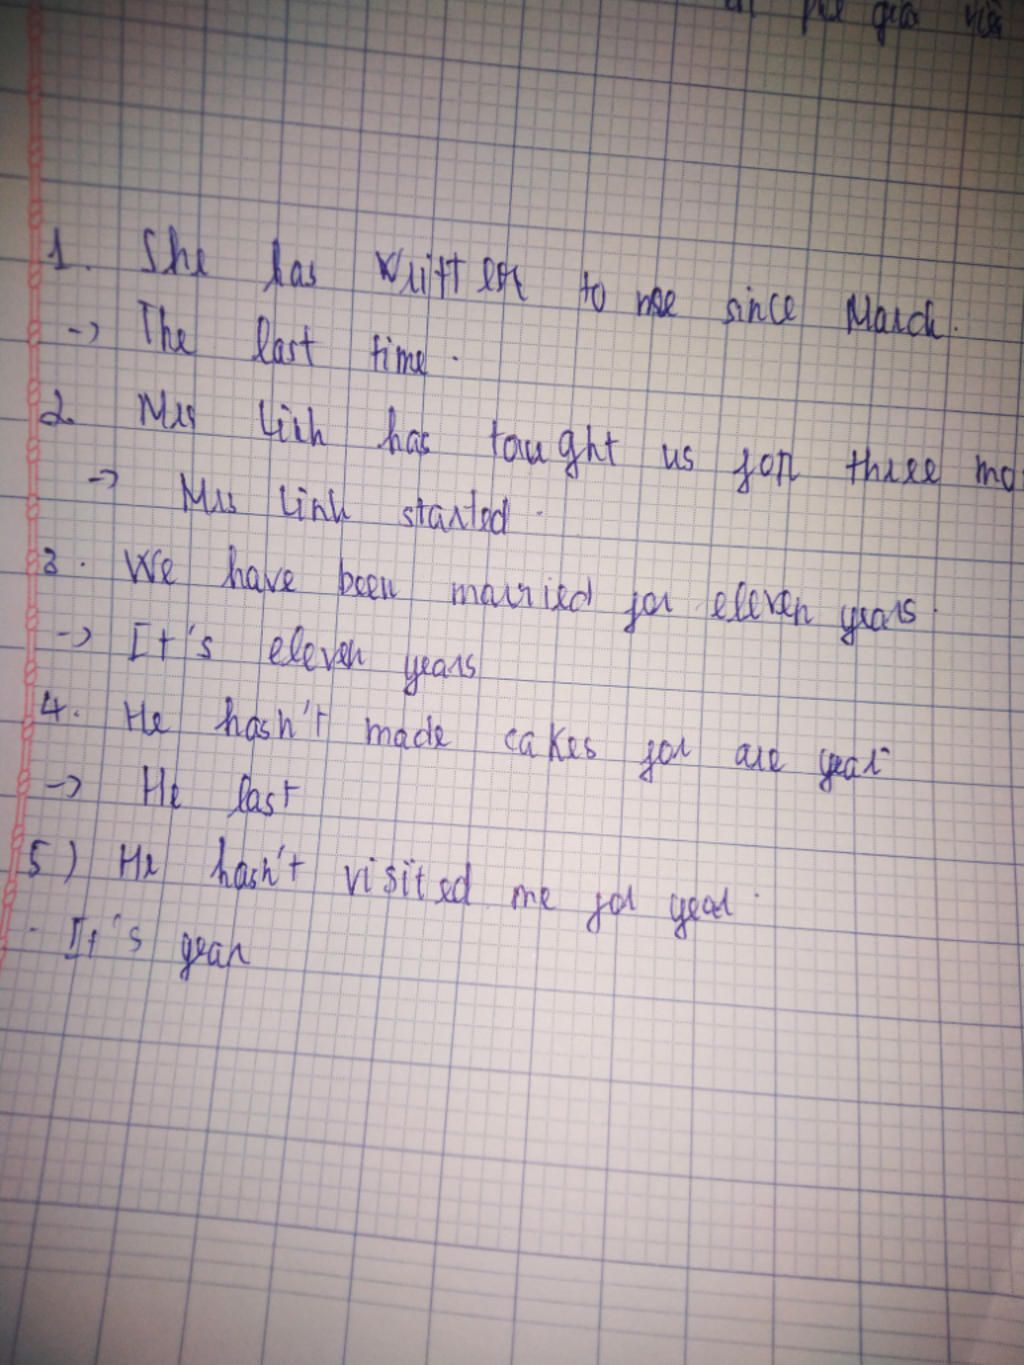 1. She has written to me since March.
-> The last time.
2. Mrs Linh has taught us for three mo
-> Mrs Linh started.
3. We have been married for eleven years.
-> It's eleven years
4. He hasn't made cakes for are year
-> He last
5) He hasn't visited me for year.
- It's year